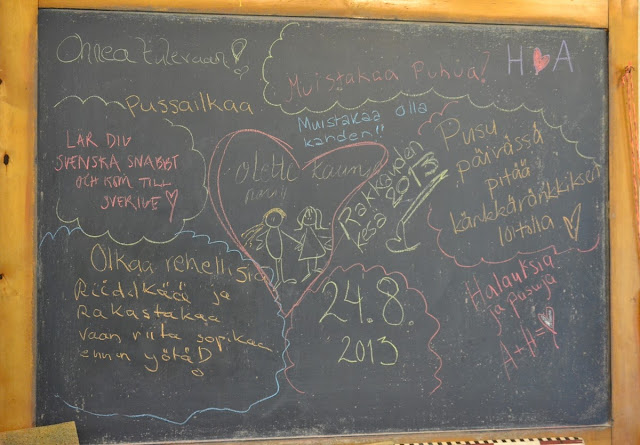 Onnea tulevaan!
Muistakaa Puhua!
H ♥ A
Pussailkaa
Muistakaa olla
kahden!!
LÄR DIU
SVENSKA SNABBT
OCH KOM TILL
SVERIVE ♡
Olette kaunis
Rakkauden
kesä 2013
Pusu
päivässä
pitää
känkkäränkkiksen
loitolla ♡
Olkaa rehellisiä
Riidelkää ja
Rakastakaa
vaan riita sopikaa
ennen yötä!
24.8.
2013
Halauksia
ja pusuja
A+H=♡